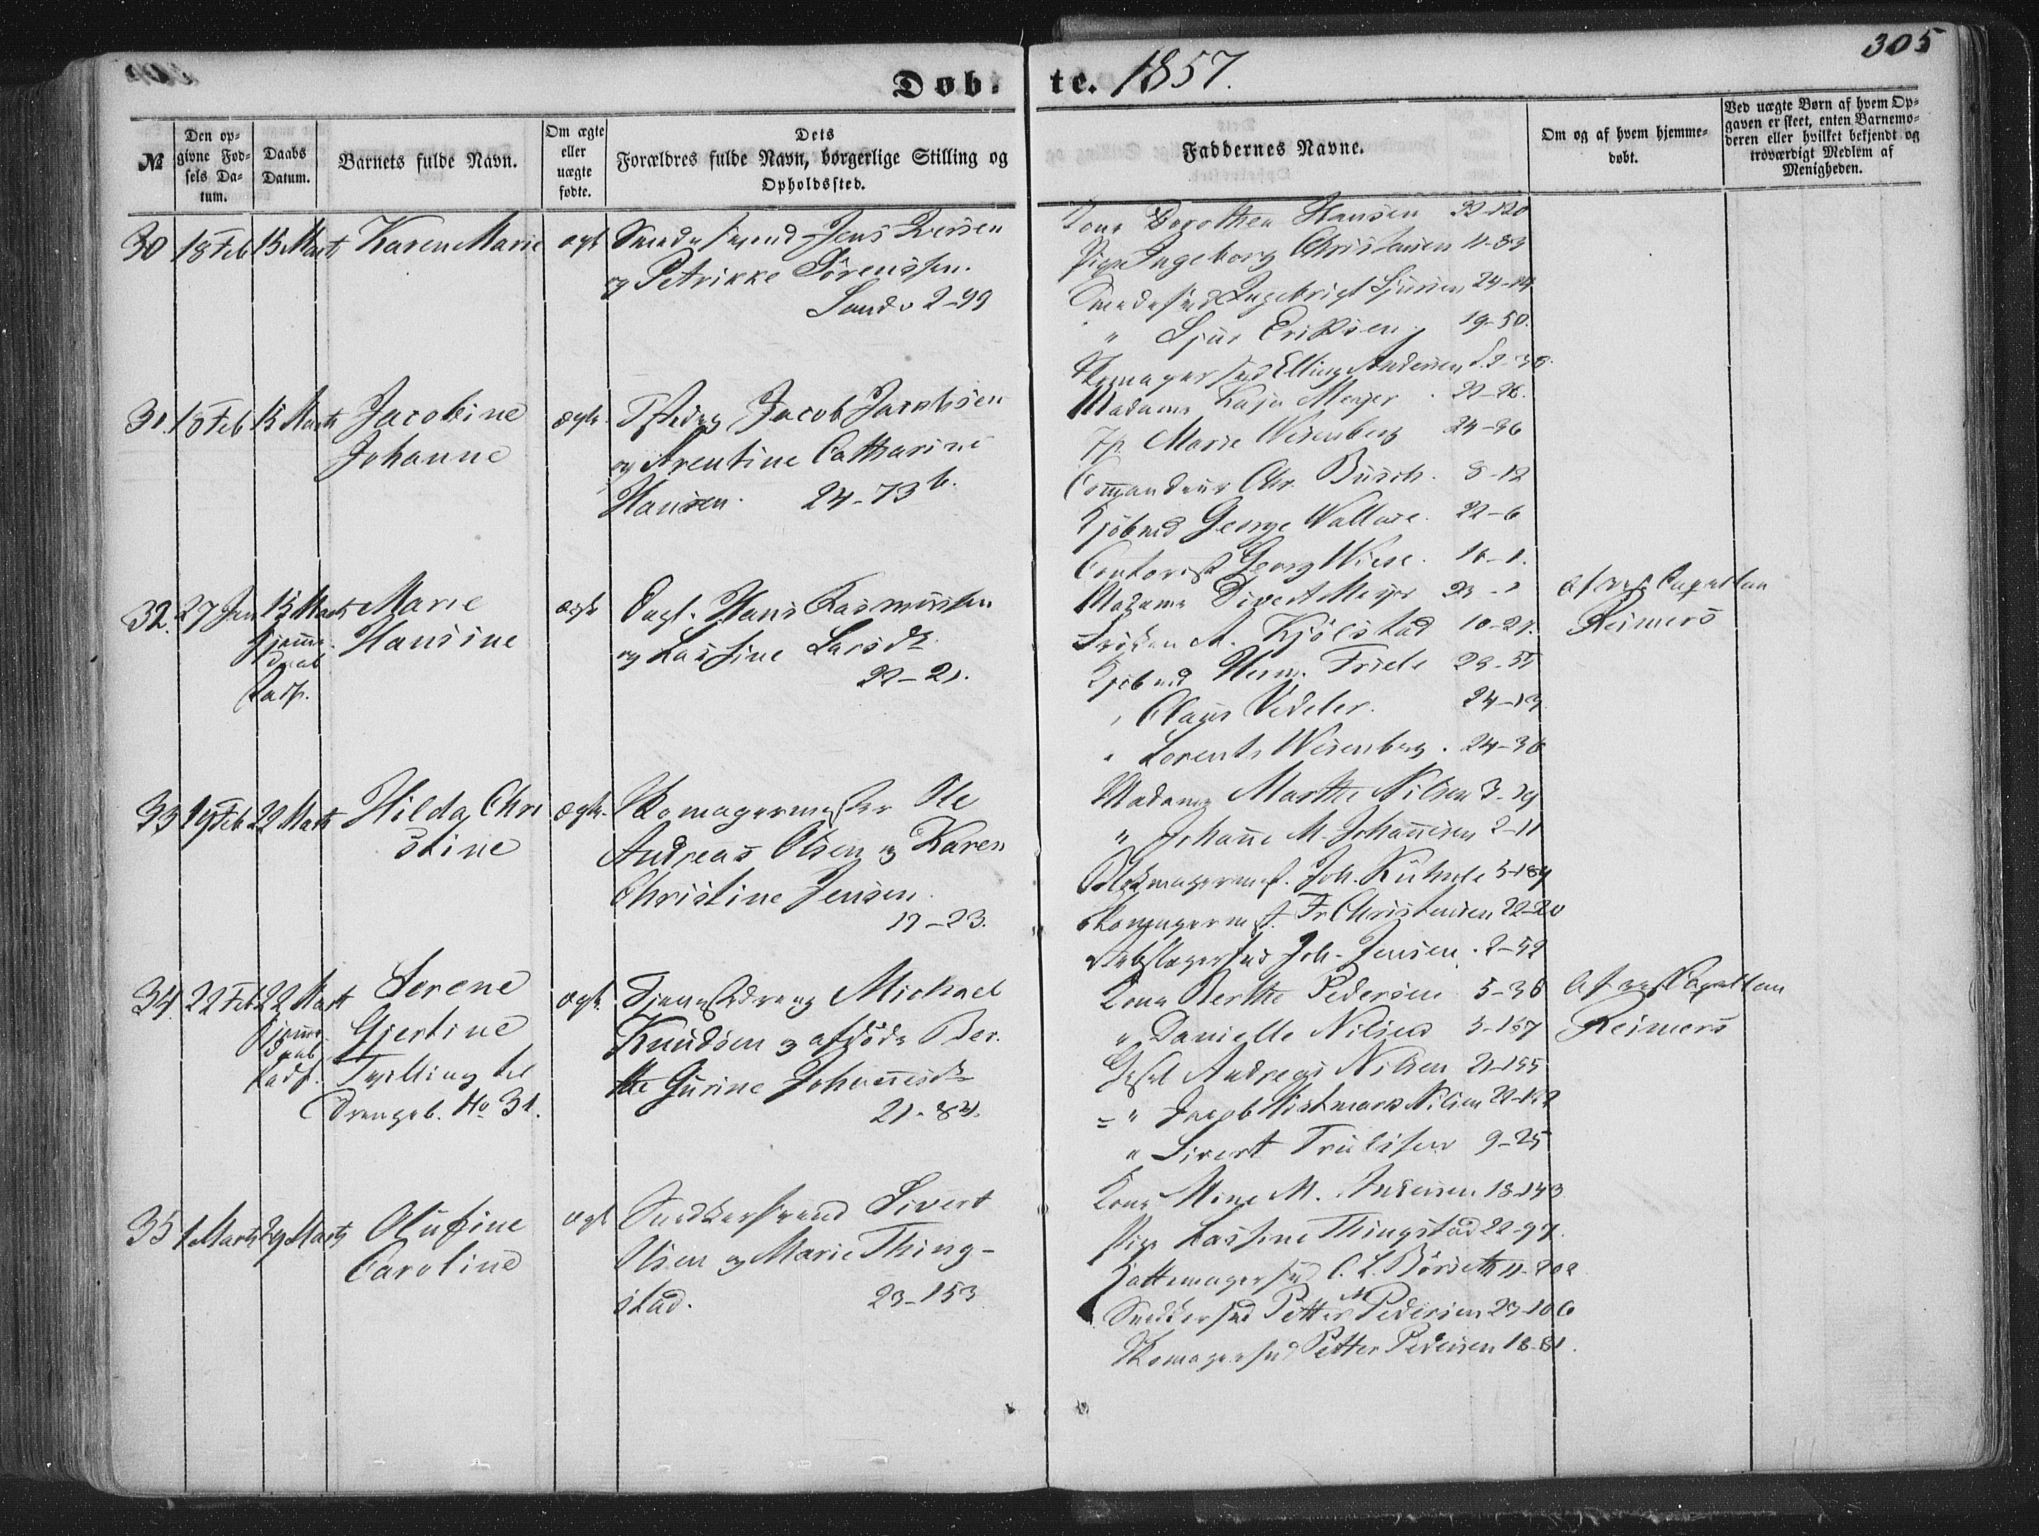 305
Døbte. 1857.
№
Den opgivne Fødsels Datum.
Daabs Datum.
Barnets fulde Navn.
Om ægte eller uægte fødte.
Dets Forældres fulde Navn, borgerlige Stilling og Opholdssted.
Faddernes Navne.
Om og af hvem hjemmedøbt.
Ved uægte Børn af hvem Opgaven er skeet, enten Barnemoderen eller hvilket bekjendt og troværdigt Medlem af Menigheden.
30 18 Feb 15 Marts Karen Marie ægte
Smedesvend Jens Iversen
og Petrikke Sørenssen.
2-99
Kone Dorothea Hansen
Pige Ingeborg Christensen 11-83
Smedesvd Ingebrigt Sjursen
" Sjur Eriksen 19-50.
Skomagersvd Elling Andersen
31. 18 Feb 15 Marts Jacobine
Johanne
ægte
Jacob Jacobsen
og Arentine Catharine
Hansen. 24-73 b.
Madame Kaja Meyer. 22-26.
Marie Wesenberg 24-36
Commandeur Chr. Busch. 8-12
Kjøbmd George Wallace. 22-6
Contorist Georg Wiese. 16-1.
32. 27 Jan 15 Marts
Hjemme
daab
Stadf.
Marie
Hansine
ægte
Hans Rasmussen
og Lassine Larsdr
22-21.
Madame Divert Meyer
Frøken A. Kjølstad 10-21.
Kjøbmd Herm. Friele 23-55
" Claus Vedeler. 24-19
" Lorents Wesenberg. 24-36
af res. Capellan
Reimers
33 19 Feb 22 Marts Hilda Chri
stine
ægte
Skomagermester Ole
Andreas Olsen og Karen
Christine Jensen.
17-23.
Madame Marthe Nilsen 3-29
" Johanne M. Johannesen 2-11
Joh. Kühnle 3-189
Skomagermst. Fr Christensen 22-20
Rebslagersvd Joh. Jensen. 2-52
34. 22 Feb 22 Marts
Hjemme
daab
Stadf.
Serene
Gjertine
Tvilling til
Drengeb. No 31.
ægte
Tjenestedreng Michael
Knudsen og afdøde Ber.
the Gurine Johannesdr
21-83.
Kone Berthe Pedersen 5-36
" Danielle Nilsen 3-157
Andreas Nilsen 21-155
" Jacob Nilsen
" Sivert Trulssen 9-25
af res Capellan
Reimers
35 1 Marts 29 Marts Olufine
Caroline
ægte
Snedkersvend Sivert
Olsen og Marie Thing-
stad. 23-153
Kone Mine M. Andersen 18-143
Pige Lassine Thingstad 22-97.
C. L. Børseth
Snedkersvd Petter M Pedersen 23-106
Skomagersvd Petter Pedersen 18-81.